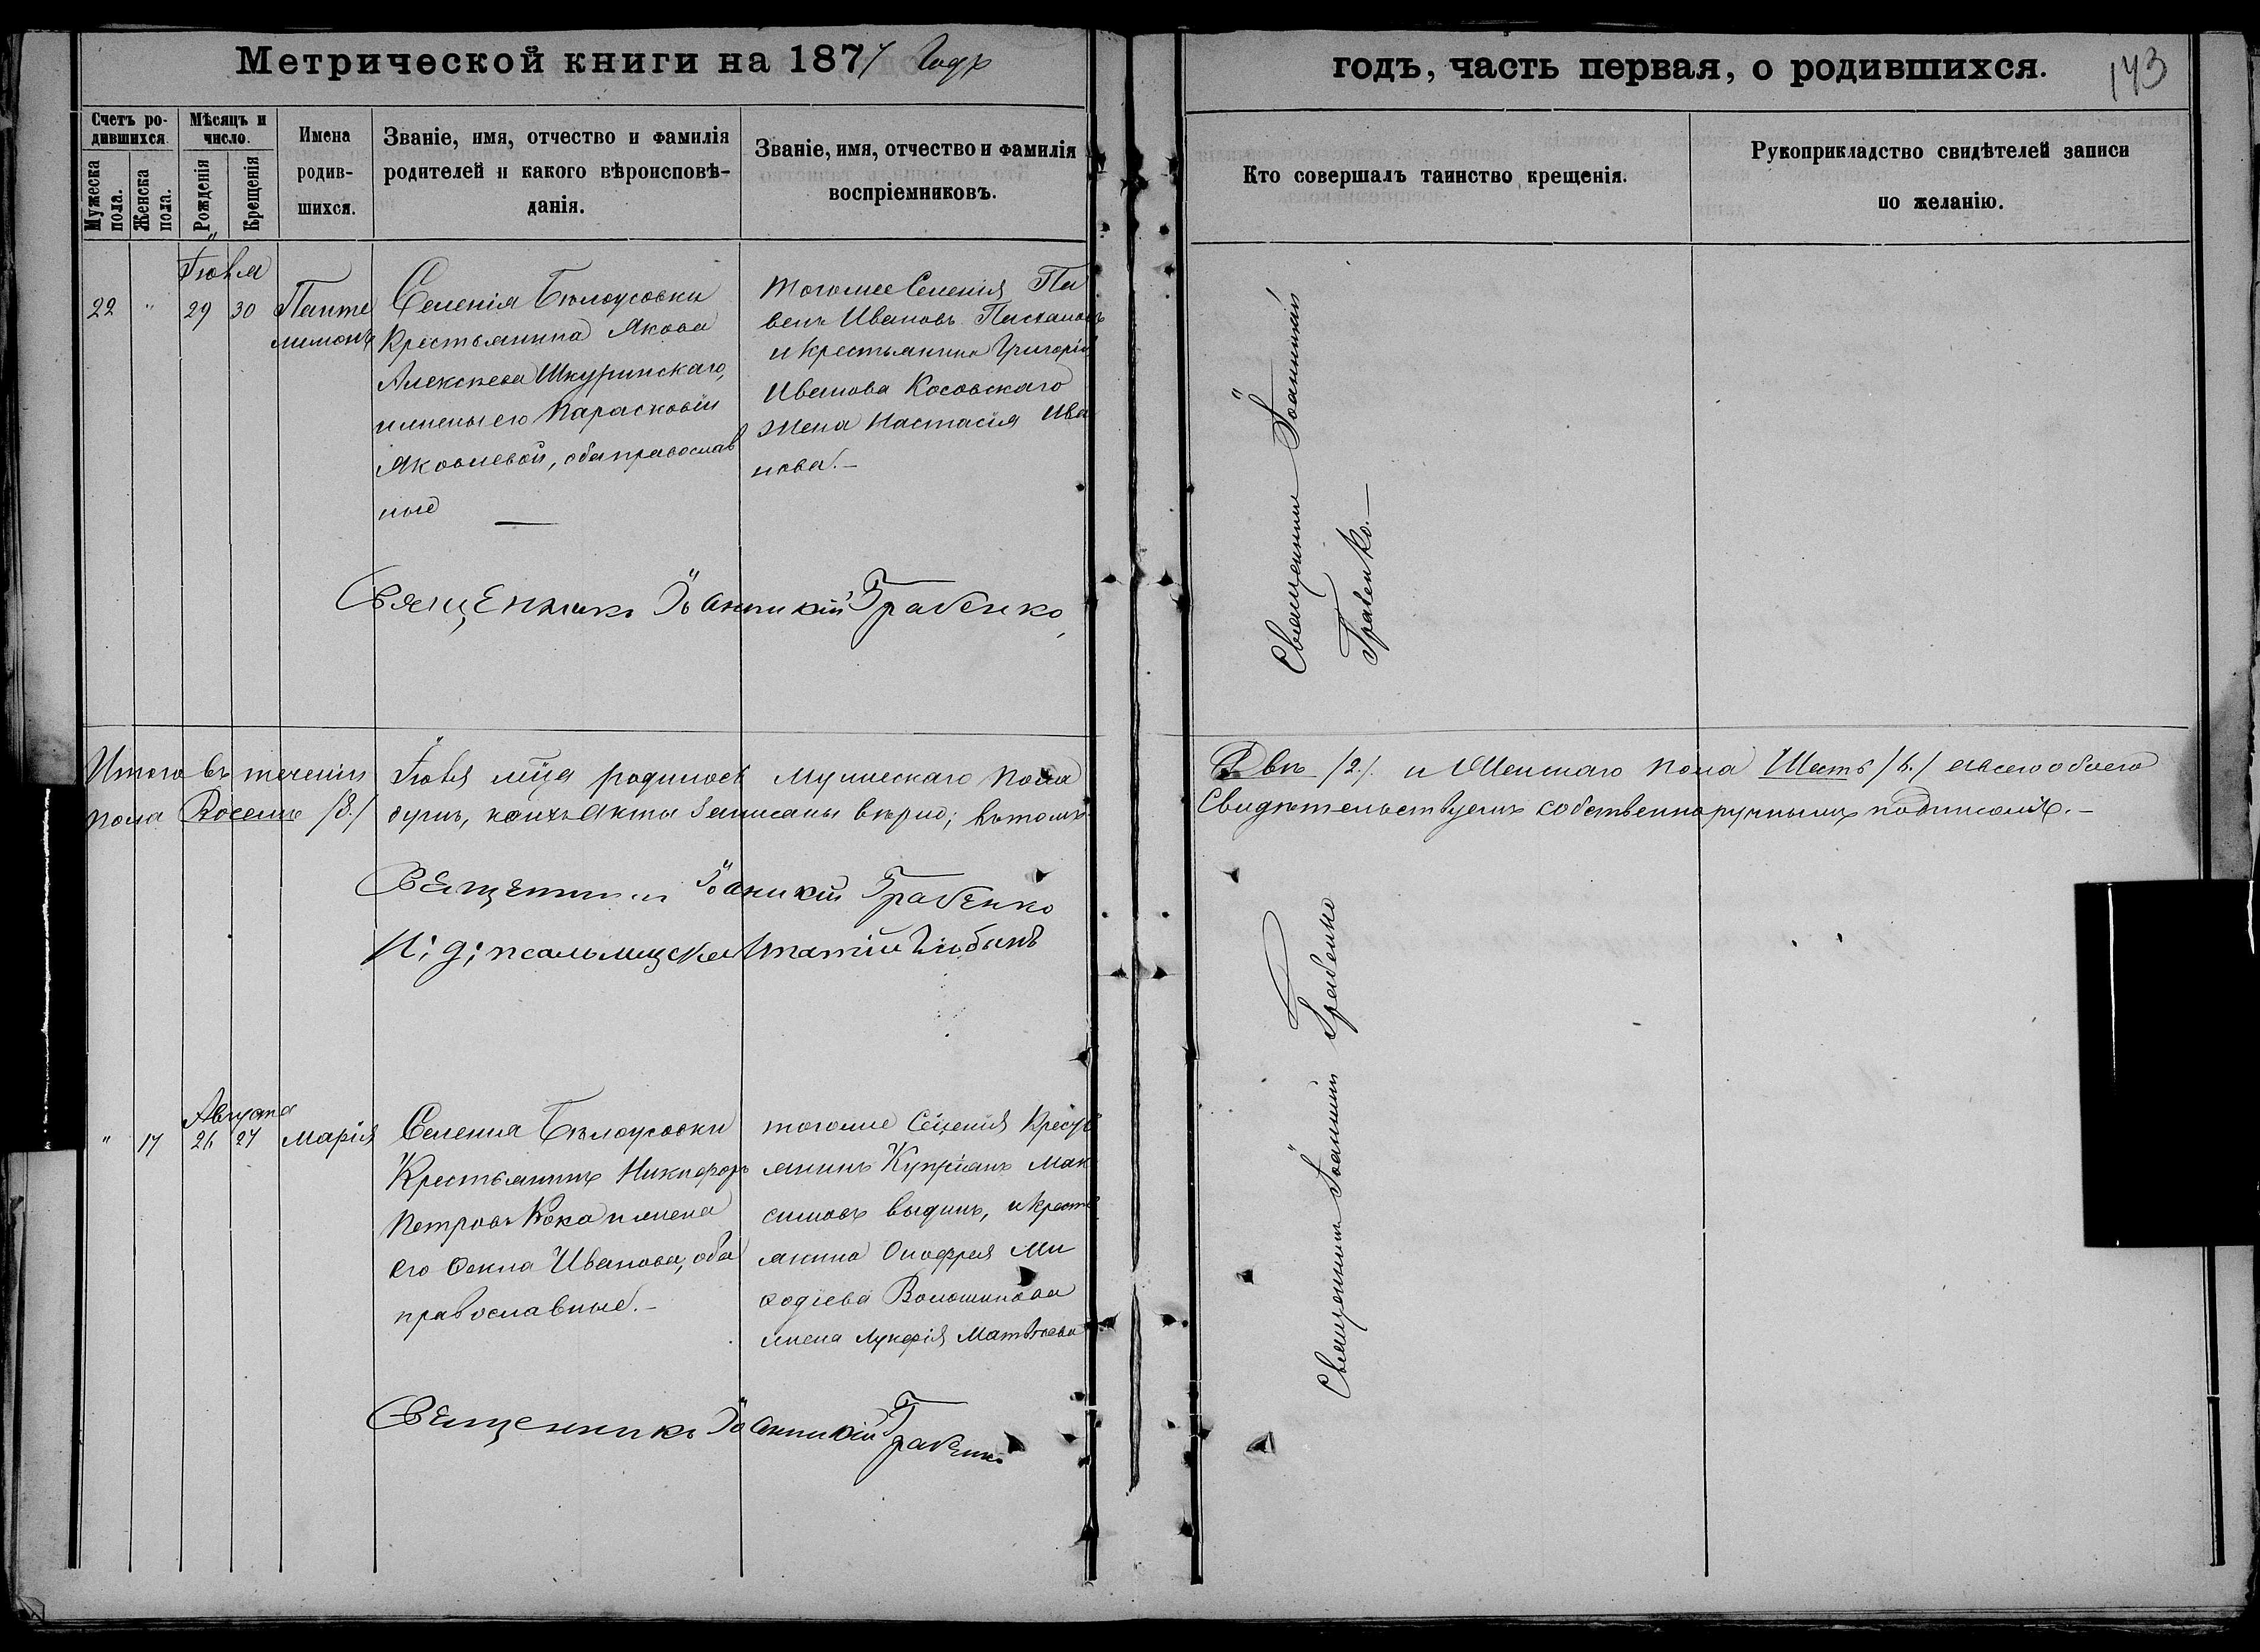 Метрической книги на 1877 Годъ
годъ, часть первая, о родившихся.
143
Счетъ ро-
дившихся.
Мужеска пола.
Женска пола.
Мѣсяцъ и
число.
Рожденія
Крещенія
Имена
родив-
шихся.
Званіе, имя, отчество и фамилія
родителей и какого вѣроисповѣ-
данія.
Званіе, имя, отчество и фамилія
воспріемниковъ.
Кто совершалъ таинство крещенія.
Рукоприкладство свидѣтелей записи
по желанію.
Іюля
22 " 29 30
Панте
лимонъ
Селенія Бѣлоусовки
Крестьянина Якова
Алексѣева Шкуринскаго,
и жены его Парасковіи
Яковлевой, оба православ
ные
тогоже Селенія
Ивановъ
и крестьянина Григорія
Иванова Косовскаго
жена Настасія Ива
нова.-
Священникъ Іоанникій
Грабенко.-
Священникъ Іоанникій Грабенко
Итого въ теченіи Іюля мца родилось мужескаго пола
Двѣ /2./. и Женскаго пола Шесть /6./ а всего обоего
пола Восемь /8./ душъ, коихъ акты записаны вѣрно; въ томъ
Свидѣтельствуемъ собственноручнымъ подписомъ.-
Священникъ Іоаникій Грабенко
И; д; псаломщика
Августа
" 17 26 27 Марія
Селенія Бѣлоусовки
Крестьянинъ Никифоръ
Петровъ Кока и жена
его Фекла Иванова, оба
православные.-
тогоже Селенія Кресть
янинъ Купріанъ Мак
симовъ, и кресть
янина Онофрея Ми
фодіева Волошинова
жена Лукерія Матвѣева
Священникъ Іоанникій Грабенко
Священникъ Іоанникій Грабенко